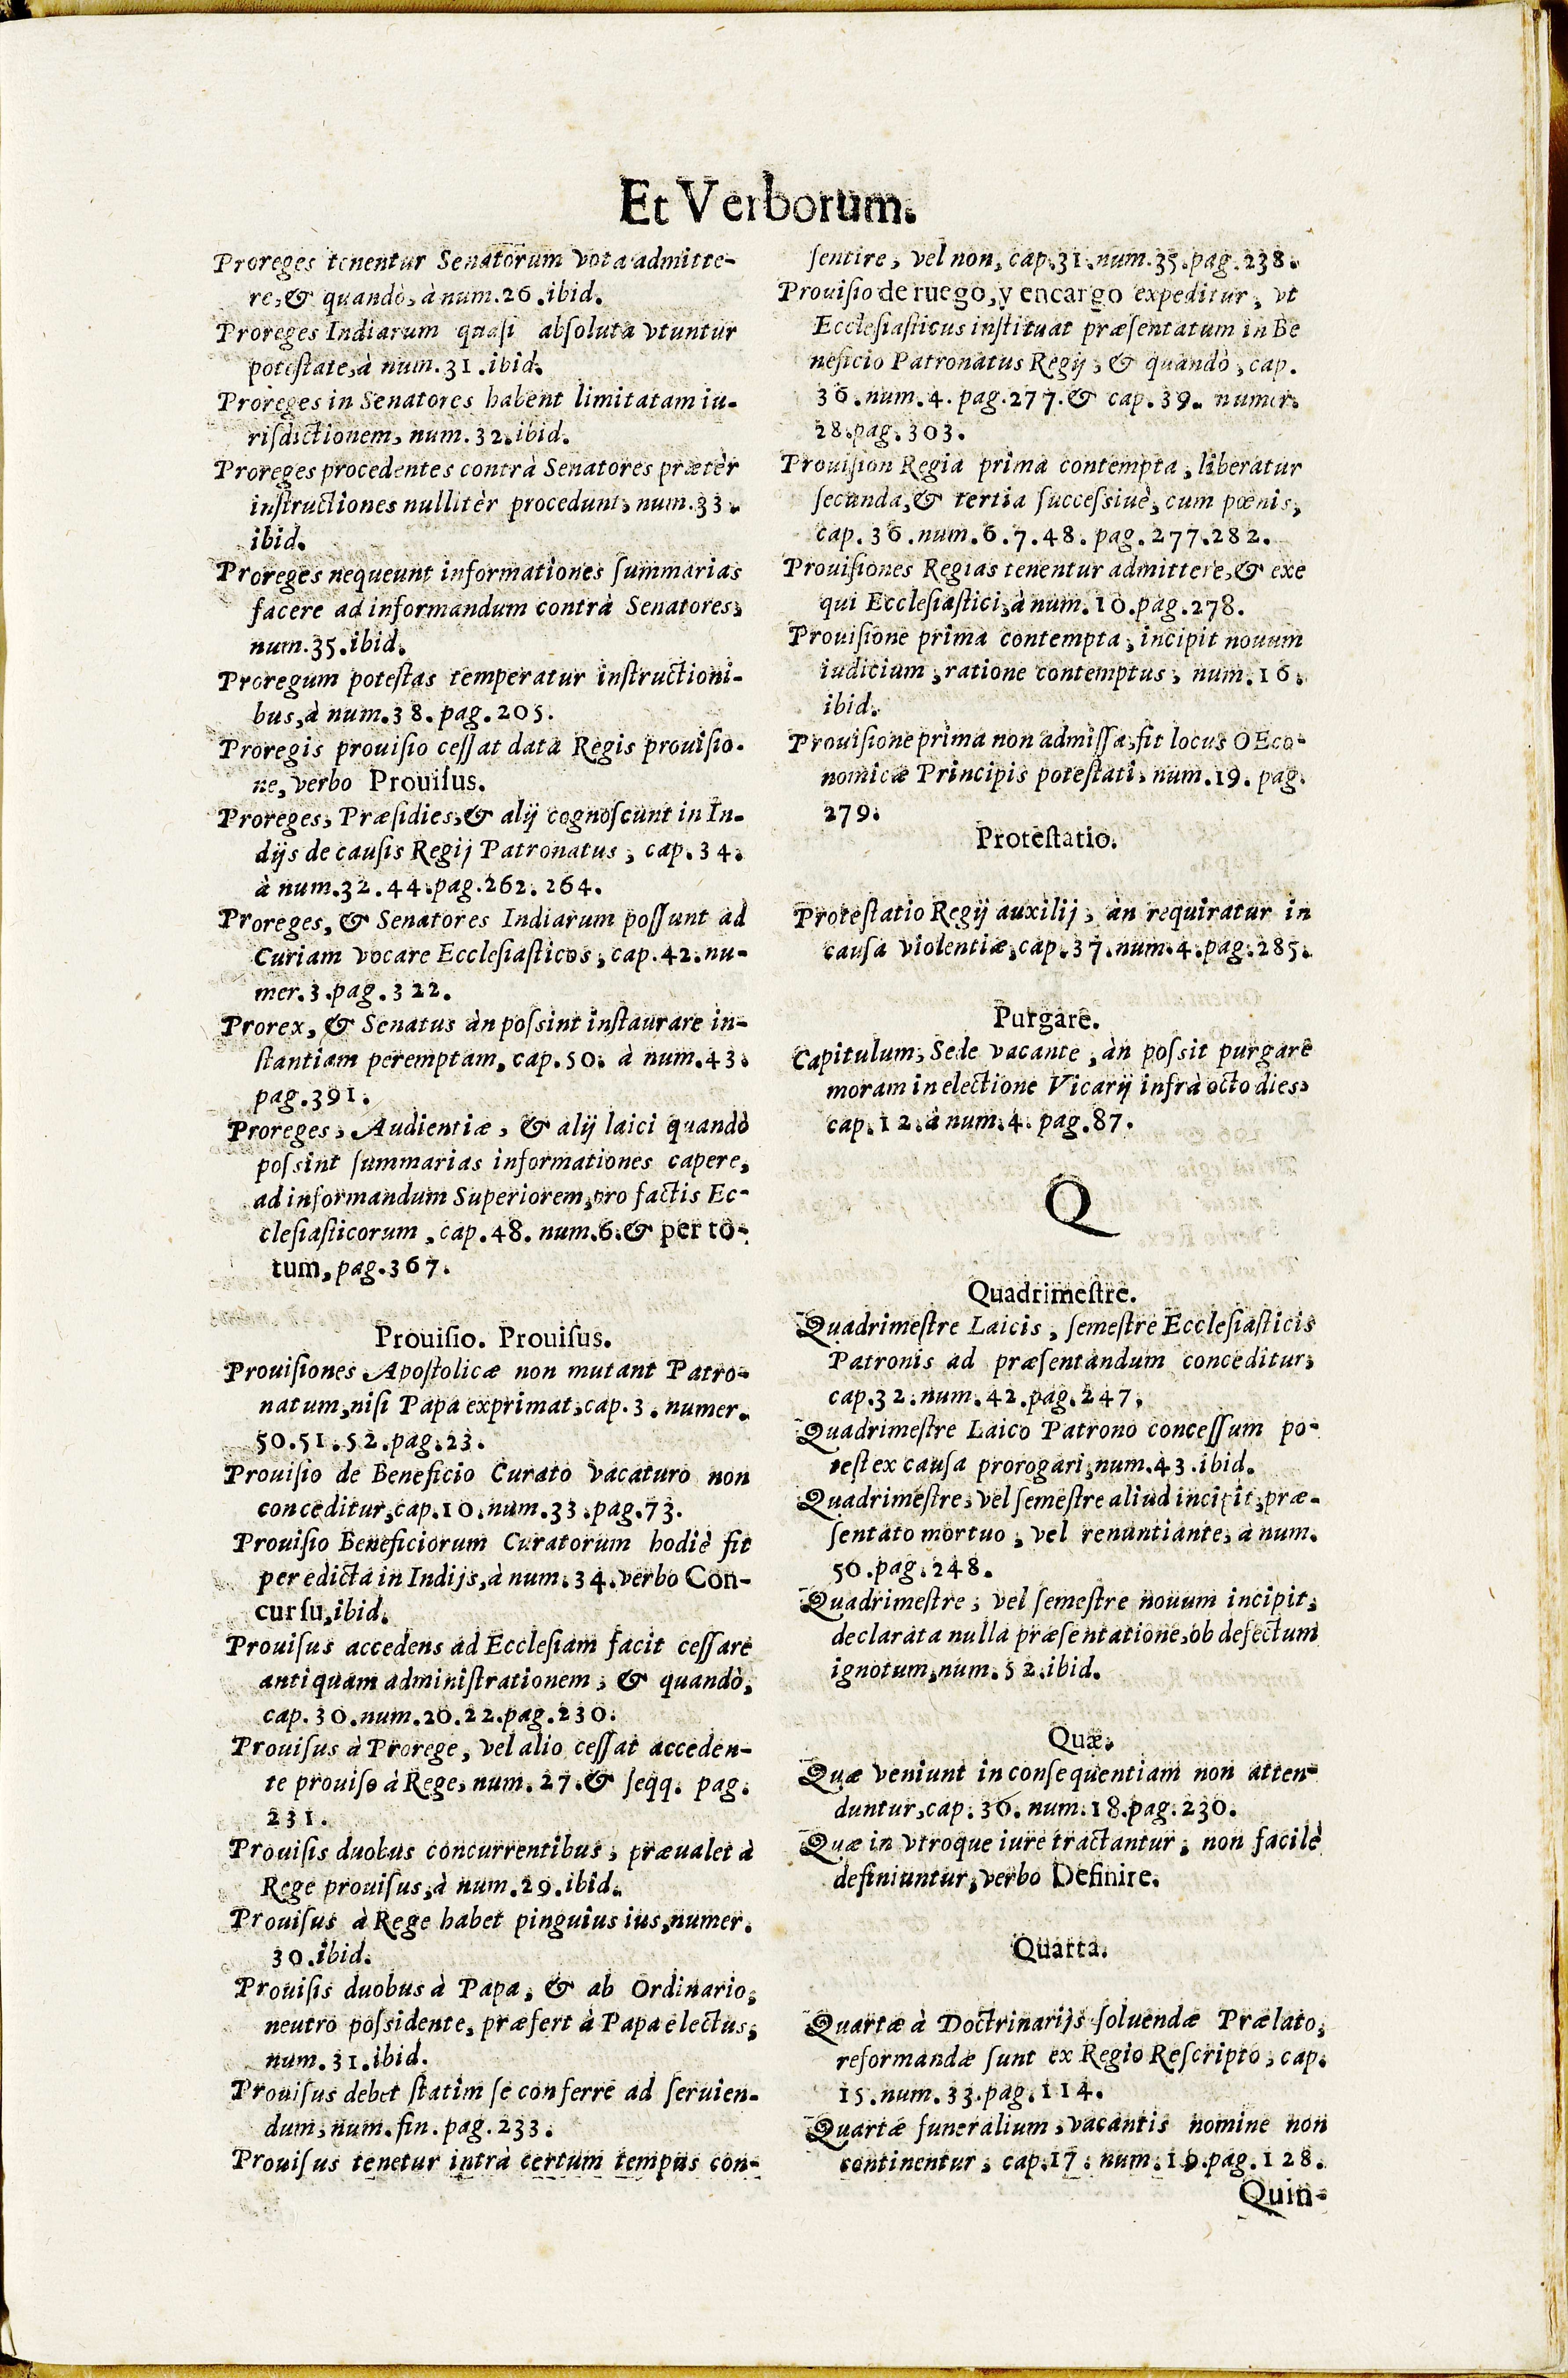 Et Verborum.
Proreges tenentur Senatorum vota admitte-
re, & quandò, à num.26.ibid.
Proreges Indiarum quasi absoluta vtuntur
potestate, à num.31.ibid.
Proreges in Senatores habent limitatam iu-
risdictionem, num.32.ibid.
Proreges procedentes contrà Senatores prætèr
instructiones nullitèr procedunt, num.33.
ibid.
Proreges nequeunt informationes summarias
facere ad informandum contrà Senatores,
num.35.ibid.
Proregum potestas temperatur instructioni-
bus, à num.38.pag.205.
Proregis prouisio cessat data Regis prouisio-
ne, verbo Prouisus.
Proreges, Præsidies, & alij cognoscunt in In-
dijs de causis Regij Patronatus, cap.34.
à num.32.44.pag.262.264.
Proreges, & Senatores Indiarum possunt ad
Curiam vocare Ecclesiasticos, cap.42.nu-
mer.3.pag.322.
Prorex, & Senatus àn possint instaurare in-
stantiam peremptam, cap.50. à num.43.
pag.391.
Proreges, Audientiæ, & alij laici quandò
possint summarias informationes capere,
ad informandum Superiorem, pro factis Ec-
clesiasticorum, cap.48. num.6.& per to-
tum, pag.367.
Prouisio. Prouisus.
Prouisiones Apostolicæ non mutant Patro-
natum, nisi Papa exprimat, cap.3. numer.
50.51.52.pag.23.
Prouisio de Beneficio Curato vacaturo non
conceditur, cap.10.num.33.pag.73.
Prouisio Beneficiorum Curatorum hodiè fit
per edicta in Indijs, à num.34.verbo Con-
cursu, ibid.
Prouisus accedens ad Ecclesiam facit cessare
antiquam administrationem, & quandò,
cap.30.num.20.22.pag.230.
Prouisus à Prorege, vel alio cessat acceden-
te prouiso à Rege, num.27.& seqq. pag.
231.
Prouisis duobus concurrentibus, præualet à
Rege prouisus, à num.29.ibid.
Prouisus à Rege habet pinguius ius, numer.
30.ibid.
Prouisis duobus à Papa, & ab Ordinario,
neutro possidente, præfert à Papa electus,
num.31.ibid.
Prouisus debet statim se conferre ad seruien-
dum, num.fin.pag.233.
Prouisus tenetur intrà certum tempus con-
sentire, vel non, cap.31.num.35.pag.238.
Prouisio de ruego, y encargo expeditur, vt
Ecclesiasticus instituat præsentatum in Be
neficio Patronatus Regij, & quandò, cap.
36.num.4.pag.277.& cap.39. numer.
28.pag.303.
Prouision Regia prima contempta, liberatur
secunda, & tertia successiuè, cum pœnis,
cap.36.num.6.7.48. pag.277.282.
Prouisiones Regias tenentur admittere, & exe
qui Ecclesiastici, à num.10.pag.278.
Prouisione prima contempta, incipit nouum
iudicium, ratione contemptus, num.16.
ibid.
Prouisione prima non admissa, fit locus OEco-
nomicæ Principis potestati, num.19. pag.
279.
Protestatio.
Protestatio Regij auxilij, àn requiratur in
causa violentiæ, cap.37.num.4.pag.285.
Purgare.
Capitulum, Sede vacante, àn possit purgare
moram in electione Vicarij infrà octo dies,
cap.12.à num.4. pag.87.
Q
Quadrimestre.
Quadrimestre Laicis, semestre Ecclesiasticis
Patronis ad præsentandum conceditur,
cap.32.num.42.pag.247.
Quadrimestre Laico Patrono concessum po-
test ex causa prorogari, num.43.ibid.
Quadrimestre, vel semestre aliud incipit, præ-
sentato mortuo, vel renuntiante, à num.
50.pag.248.
Quadrimestre, vel semestre nouum incipit,
declarata nulla præsentatione, ob defectum
ignotum, num.52.ibid.
Quæ.
Quæ veniunt in consequentiam non atten-
duntur, cap.30.num.18.pag.230.
Quæ in vtroque iure tractantur, non facilè
definiuntur, verbo Definire.
Quarta.
Quartæ à Doctrinarijs soluendæ Prælato,
reformandæ sunt ex Regio Rescripto, cap.
15.num.33.pag.114.
Quartæ funeralium, vacantis nomine non
continentur, cap.17. num.19.pag.128.
Quin-